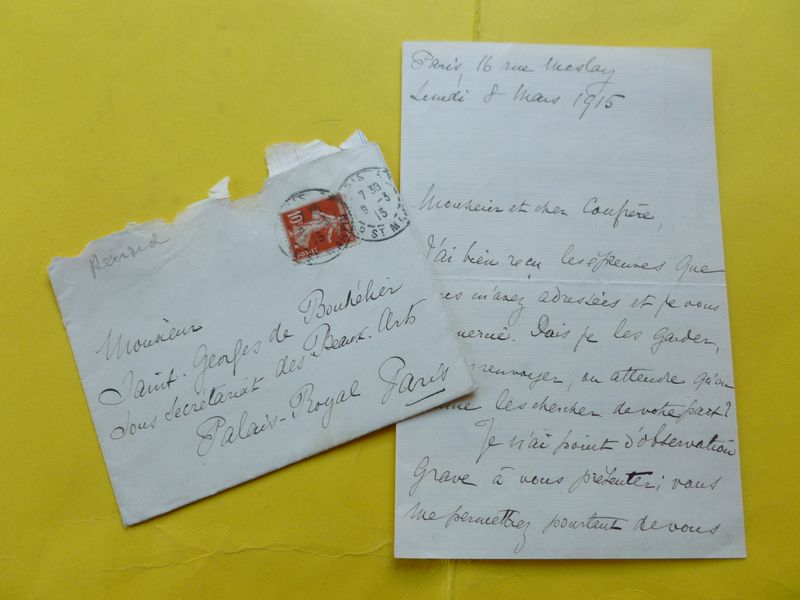 Renard
Monsieur
Saint-Georges de Bouhélier
Sous Secrétariat des Beaux-Arts
Palais-Royal Paris
10
7 30
9 -3
15
ST M
Paris, 16 rue Meslay
Lundi 8 Mars 1915
Monsieur et cher Confrère,
J'ai bien reçu les épreuves que
m'avez adressées et je vous
Dois je les garder,
renvoyer, ou attendre qu'on
les chercher de votre part?
Je n'ai point d'observation
grave à vous présenter; vous
me permettrez pourtant de vous